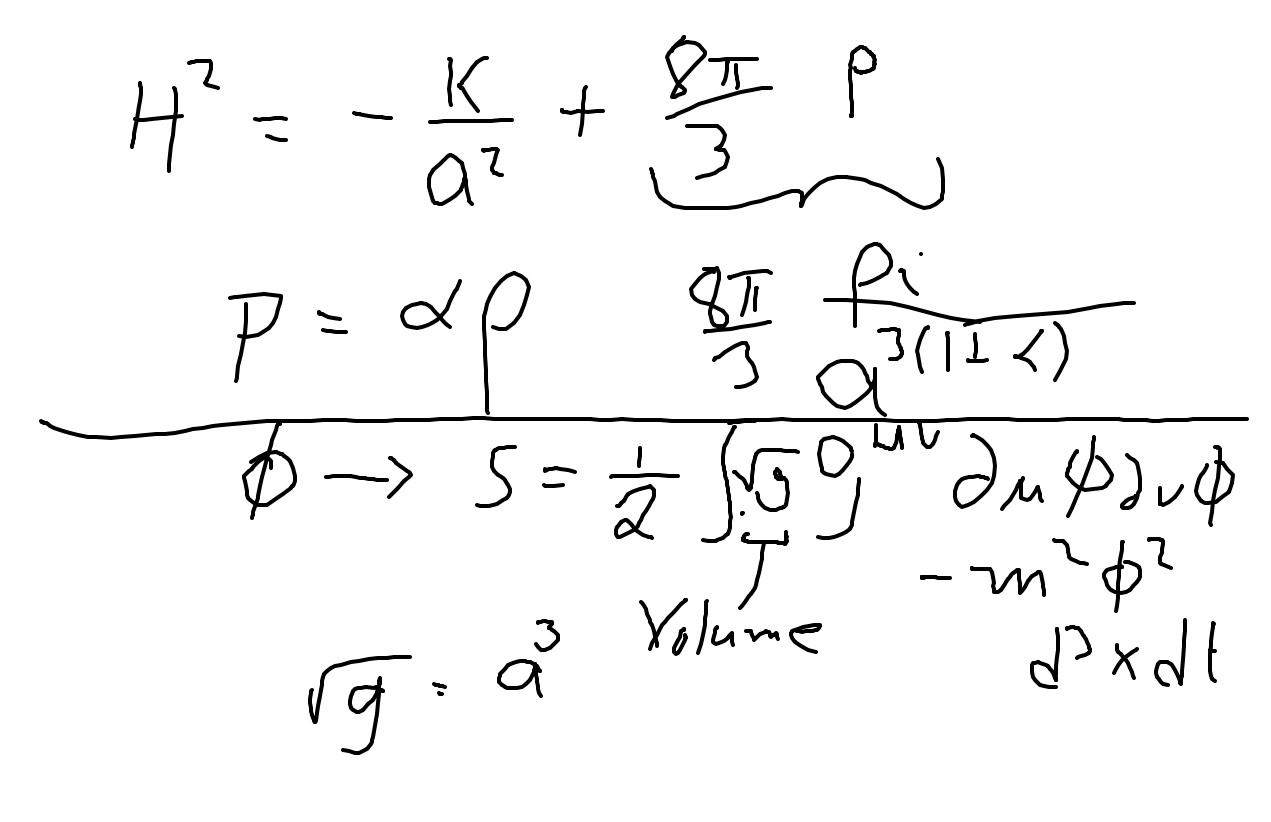 H² = - K/a² + 8π/3 ρ
P = αρ 8π/3 ρi/a³⁽¹⁺α⁾
φ → S = 1/2 ∫√g g^μν ∂μ φ ∂ν φ
- m² φ²
Volume
d³x dt
√g = a³